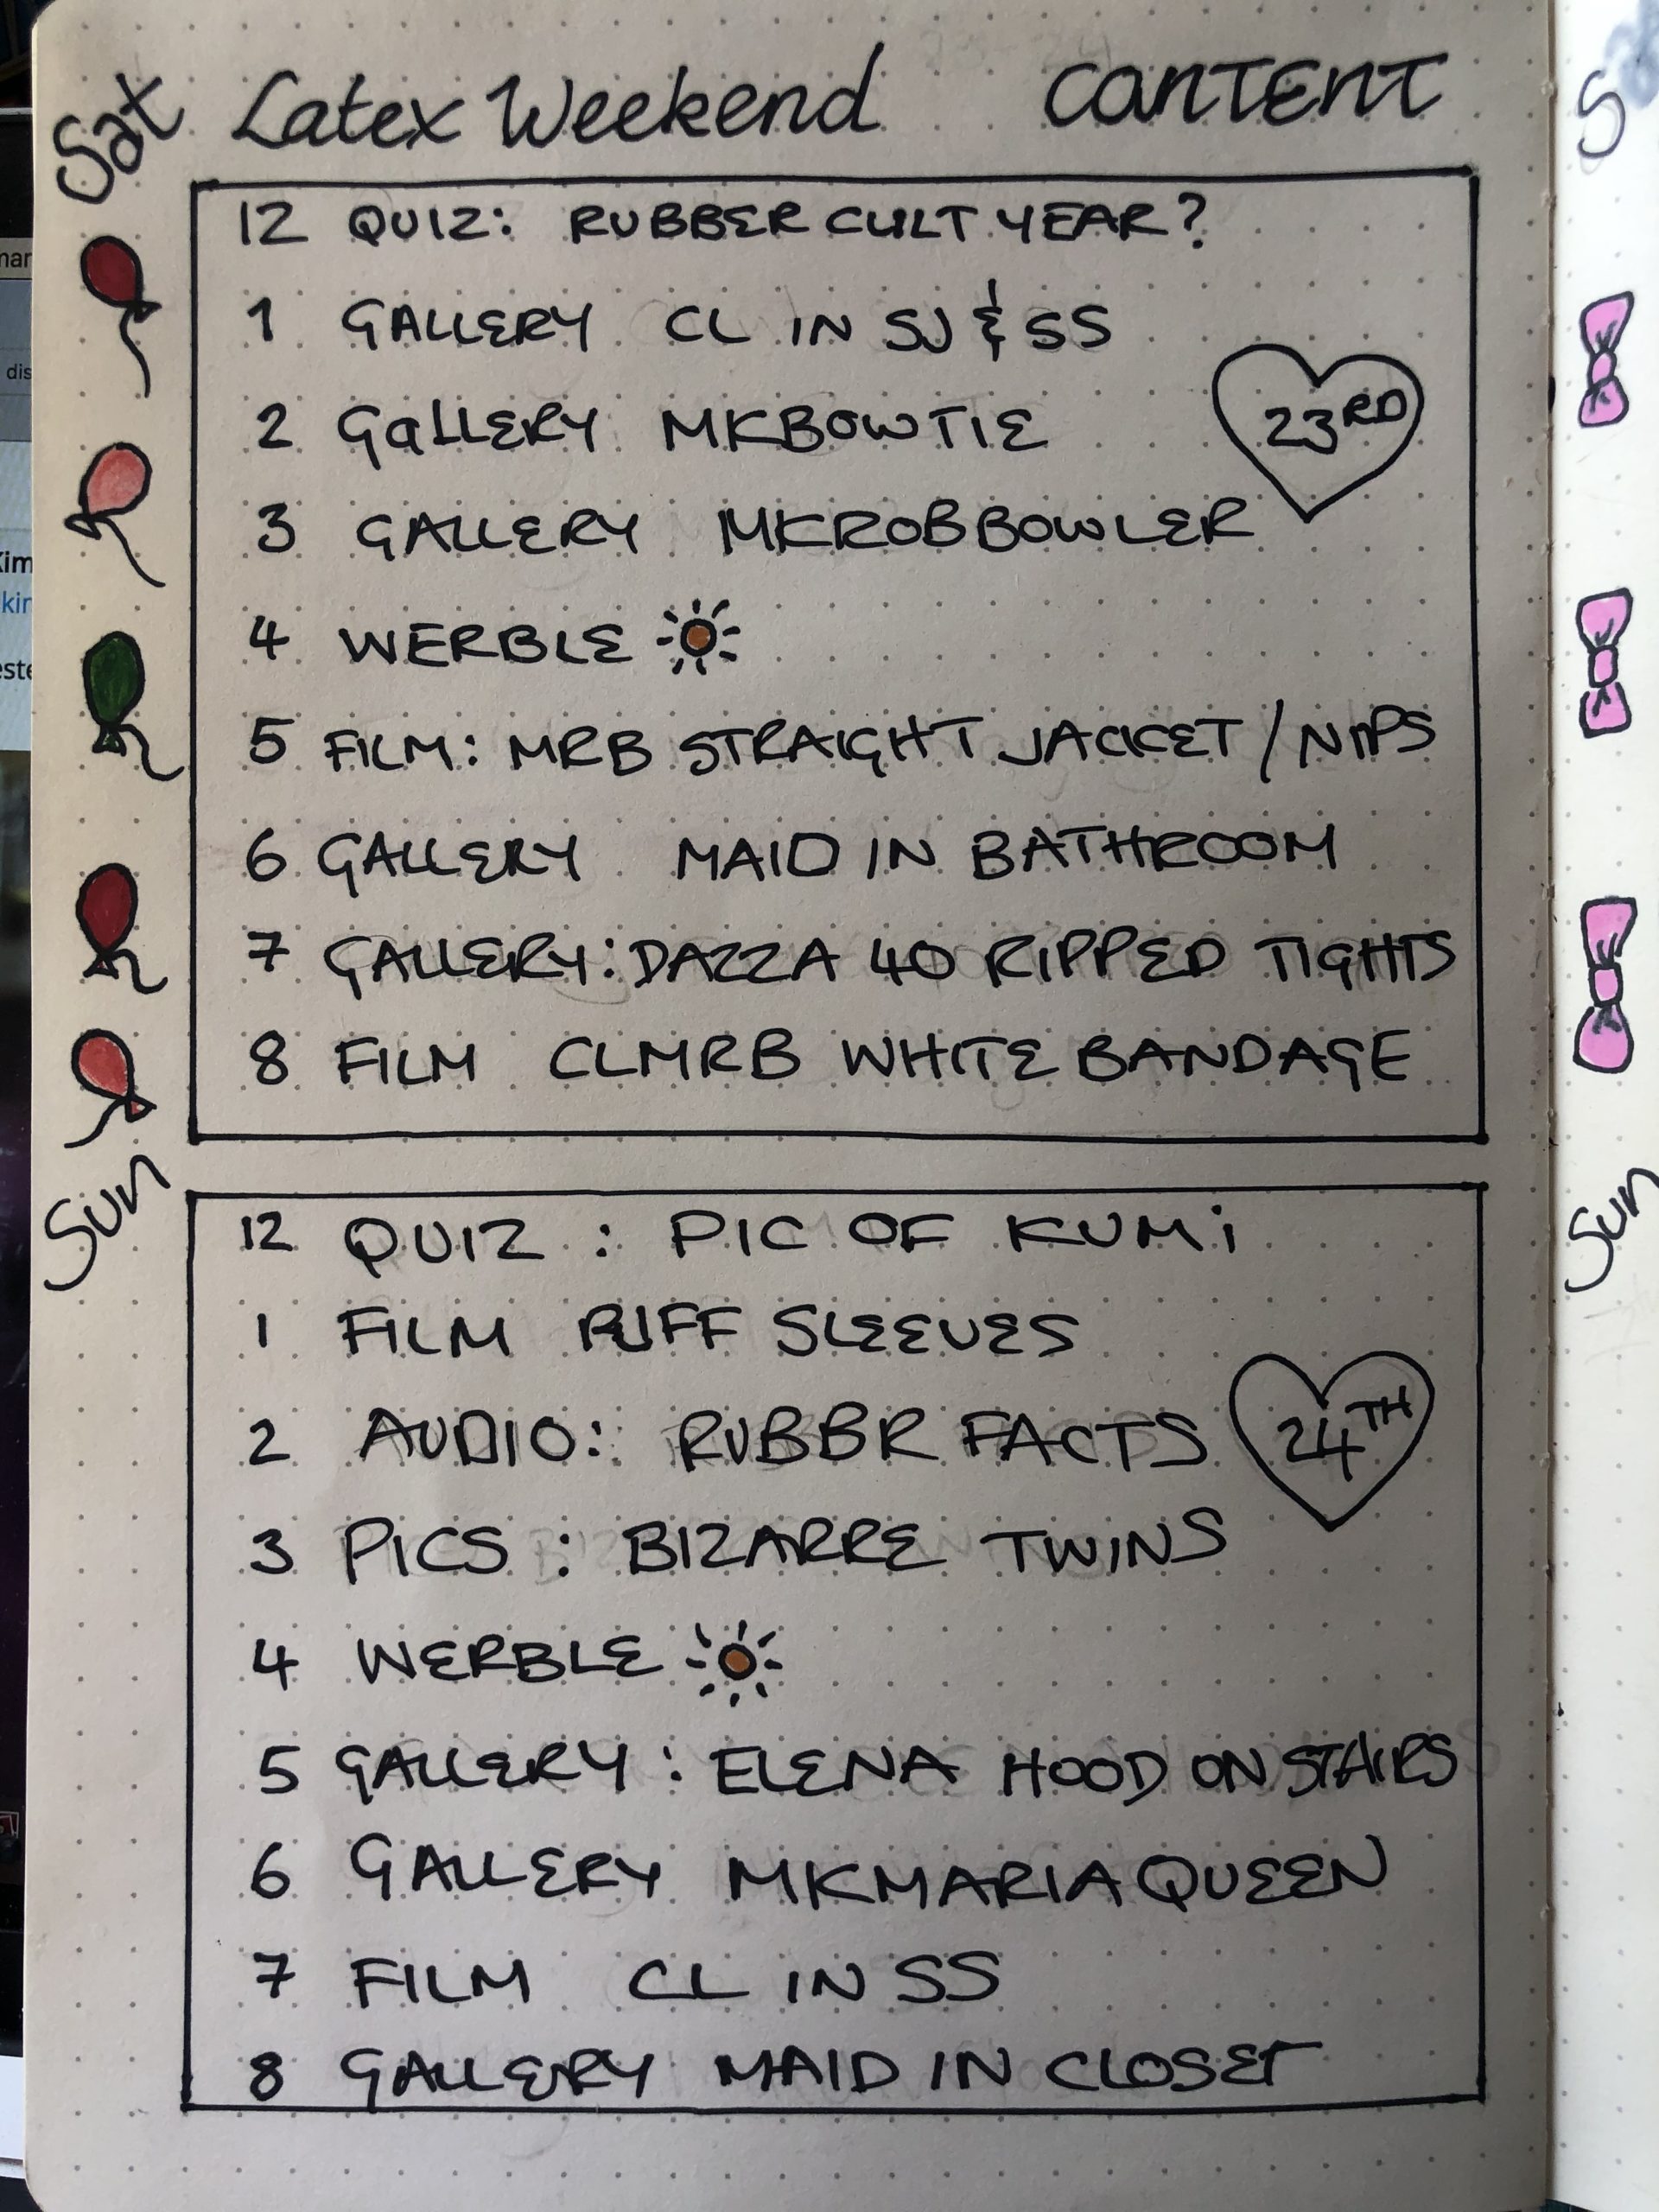 Sat Latex Weekend CONTENT
12 QUIZ: RUBBER CULT YEAR?
1 GALLERY CL IN SJ & SS
2 GALLERY MKBOWTIE
23RD
3 GALLERY MKROBBOWLER
4 WERBLE
5 FILM: MRB STRAIGHT JACKET / NIPS
6 GALLERY MAID IN BATHROOM
7 GALLERY: DAZZA 40 RIPPED TIGHTS
8 FILM CLMRB WHITE BANDAGE
Sun
12 QUIZ: PIC OF KUMi
1 FILM RUFF SLEEVES
2 AUDIO: RUBBR FACTS
24TH
3 PICS: BIZARRE TWINS
4 WERBLE
5 GALLERY: ELENA HOOD ON STAIRS
6 GALLERY MKMARIAQUEEN
7 FILM CL IN SS
8 GALLERY MAID IN CLOSET
Sun